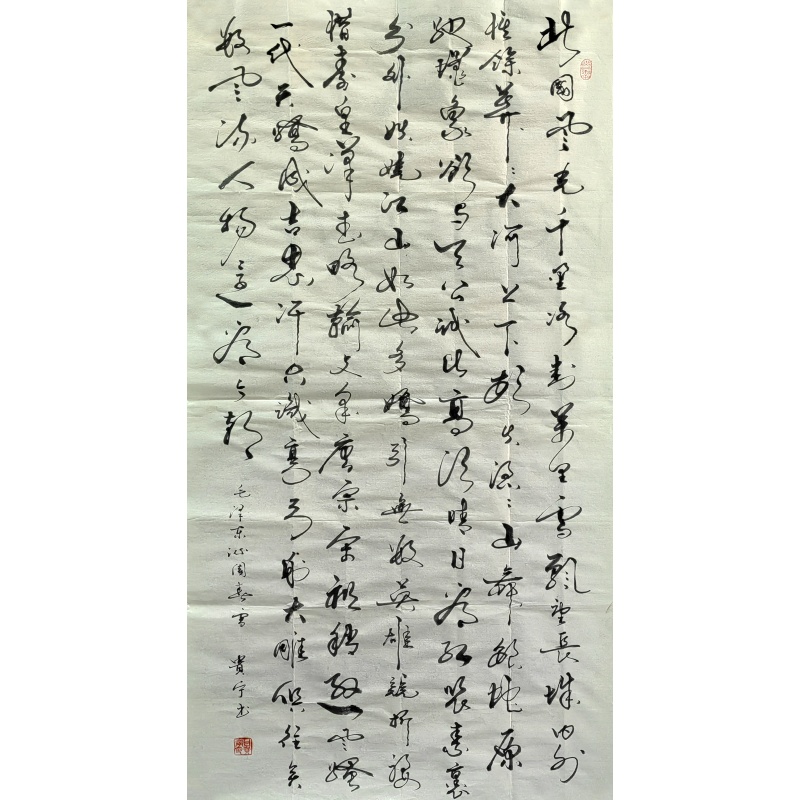 北國风光千里冰封萬里雪飄望長城内外
惟餘莽々大河上下頓失滔々山舞銀蛇原
馳蠟象欲与天公試比高須晴日看红装素裹
分外妖娆江山如此多嬌引無數英雄競折腰
惜秦皇漢武略輸文采唐宗宋祖稍遜风騷
一代天驕成吉思汗只識弯弓射大雕俱往矣
數风流人物還看今朝
毛泽东沁園春雪 貴宁书